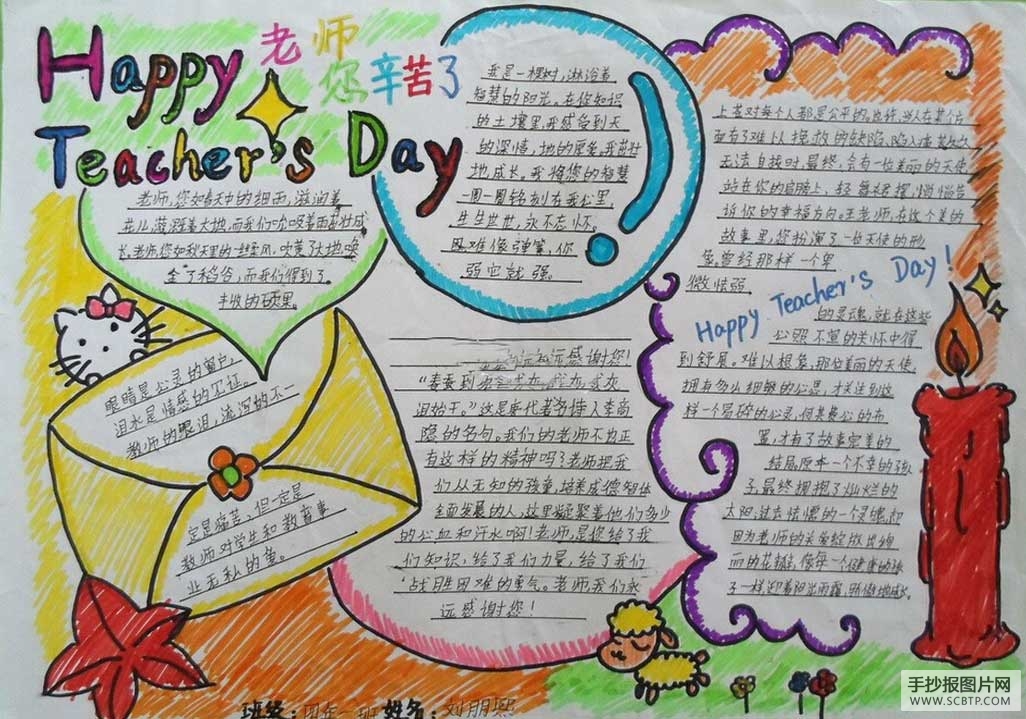 Happy 老师
您辛苦了
Teacher's Day
老师,您如春天中的细雨,滋润着
花儿,滋润着大地,而我们吮吸着雨露茁壮成
长。老师,您如秋天里的一丝凉风,吹黄了大地,唤
金了稻谷,而我们得到了
丰收的硕果。
我是一棵树,淋浴着
智慧的阳光。在你知识
的土壤里,我感受到天
的深情,地的厚爱,我茁壮
地成长。我将您的智慧
一圈一圈铭刻在我心里,
生生世世,永不忘怀。
困难像弹簧,你
弱它就强。
上苍对每个人都是公平的,也许,当人在某个方
面有了难以挽救的缺陷,陷入痛苦
无法自拔时,最终,会有一位美丽的天使
站在你的肩膀上,轻
诉你的幸福方向。王老师,在这个美的
故事里,您扮演了一位天使的形
象。曾经那样一个卑
微怯弱
Happy Teacher's Day!
的灵魂,就在这些
关怀中得
到舒展。难以想象,那位美丽的天使,
拥有多么细腻的心思,才关注到这
样一个易碎的心灵,何其费心的布
置,才有了故事完美的
结局。原本一个不幸的孩
子,最终拥抱了灿烂的
太阳。过去怯懦的一个灵魂,却
因为老师的关爱绽放出绚
丽的花瓣,像每一个健康的孩
子一样迎着阳光雨露,骄傲地成长。
眼睛是心灵的窗户,
泪水是情感的见证。
教师的眼泪,流泻的不一
定是痛苦,但一定是
教师对学生和教育事
业无私的美。
远感谢您!
"春蚕到
泪始干。"这是唐代著名诗人李商
隐的名句。我们的老师不也正
有这样的精神吗?老师把我
们从无知的孩童,培养成德智体
全面发展的人,这里凝聚着他们多少
的心血和汗水啊!老师,是您给了我
们知识,给了我们力量,给了我们
战胜困难的勇气。老师我们永
远感谢您!
班级:四年一班 姓名:刘朋熙
手抄报图片网
WWW.SCBTP.COM